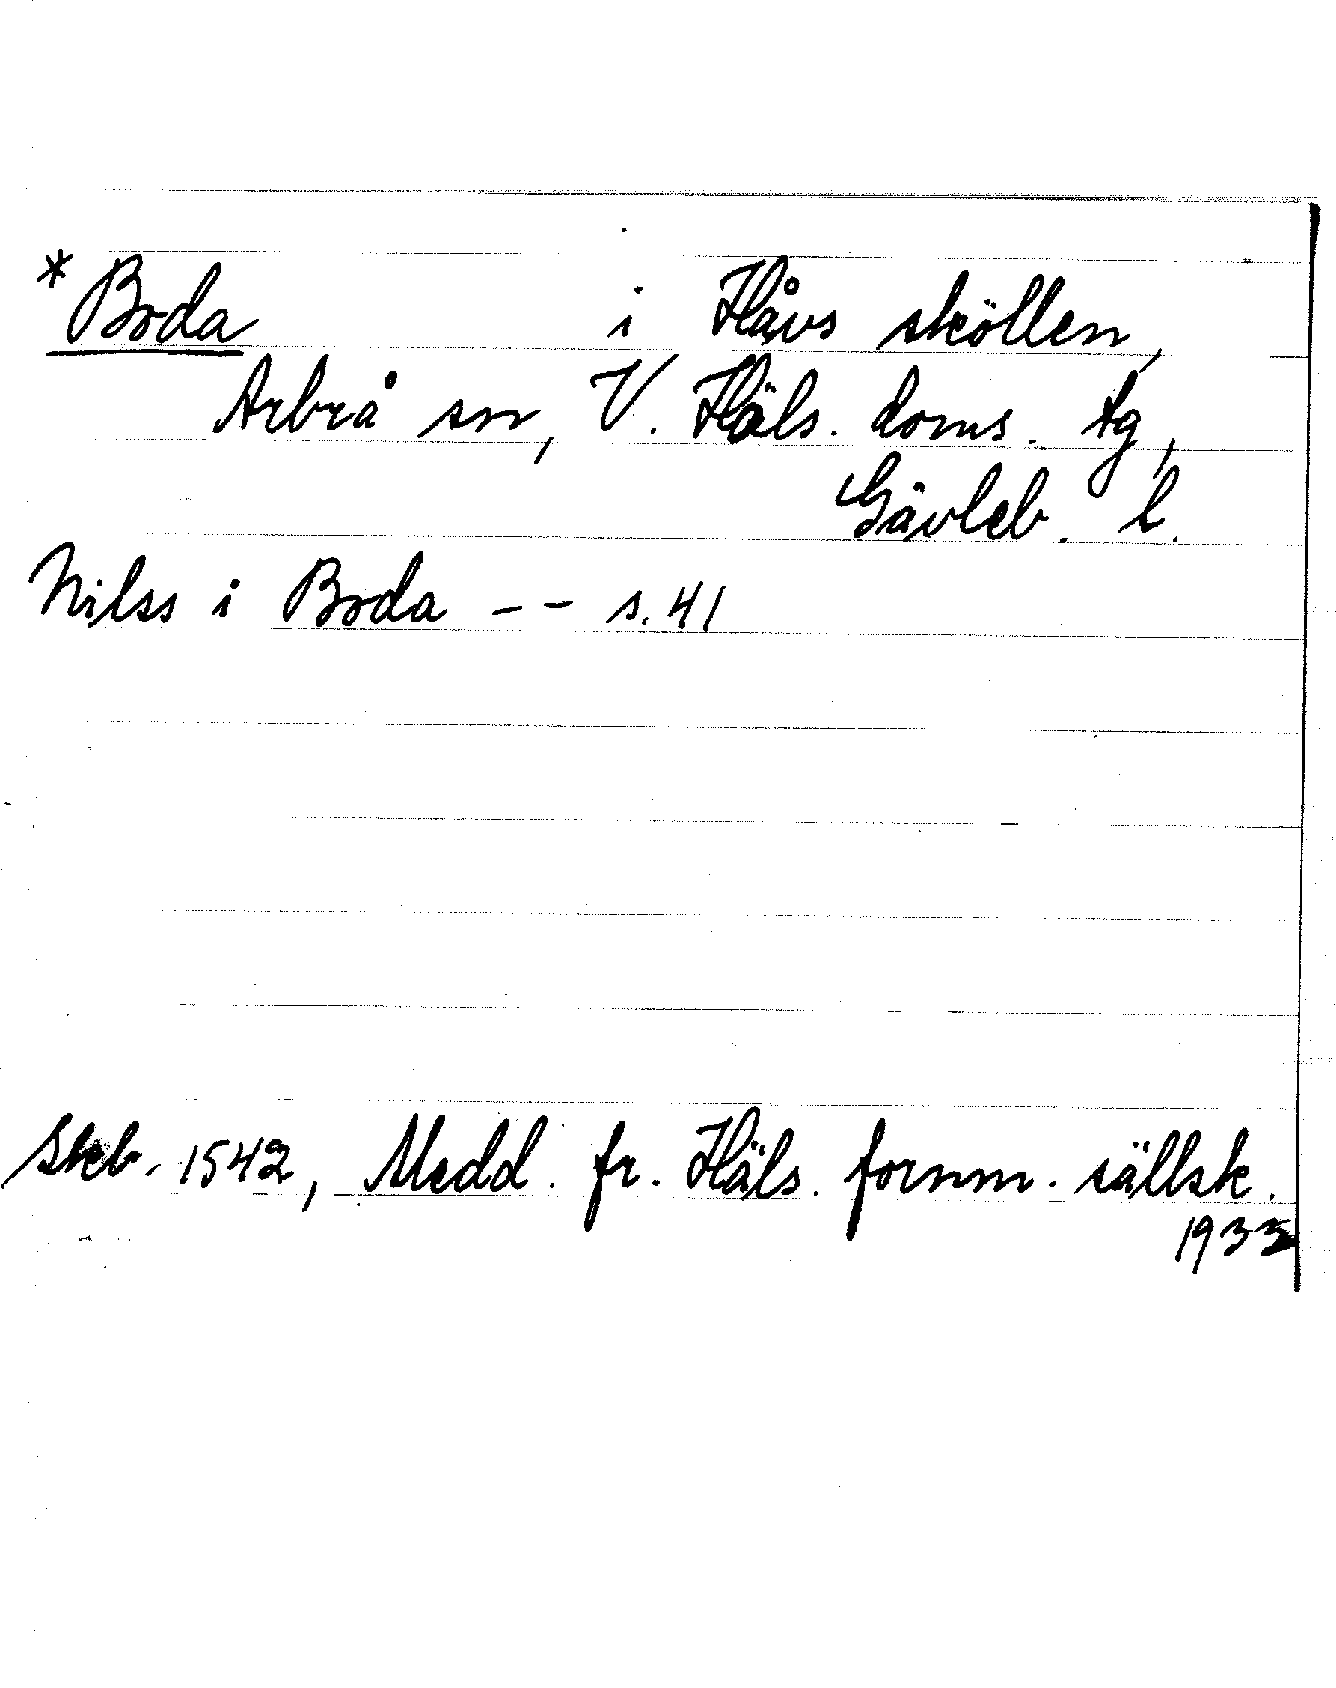 *Boda i Håvs sköllen,
Arbrå sn, V. Häls. doms. tg,
Gävleb. l.
Nilss i Boda -- s. 41
Skb. 1542, Medd. fr. Häls. fornm. sällsk.
1933